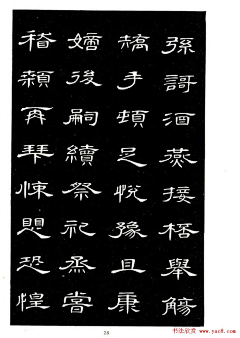 孫謌洄燕接桮舉觴
矯手頓足悅豫且康
嫡後嗣續祭祀烝嘗
稽顙再拜悚懼恐惶
28
书法欣赏 www.yac8.com